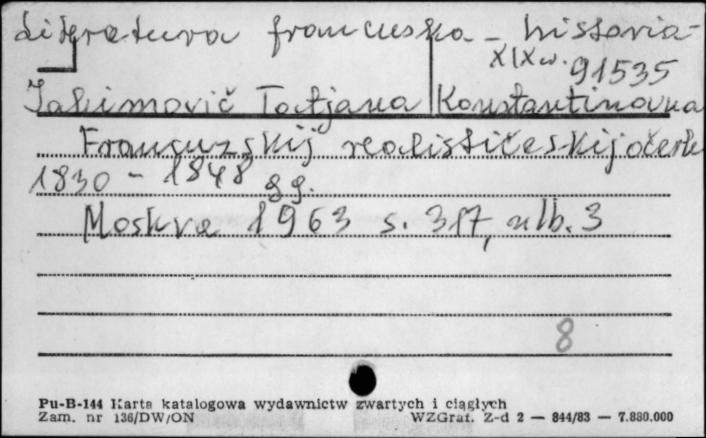 Literatura francuska - historia -
XIX w.
91535
Jakimovič Tatjana Konstantinovna
Francuzskij realističeskij očerk
1830 - 1848 gg.
Moskva 1963 s. 317, nlb. 3
8
Pu-B-144 Karta katalogowa wydawnictw zwartych i ciągłych
Zam. nr 136/DW/ON WZGraf. Z-d 2 — 844/83 — 7.880.000